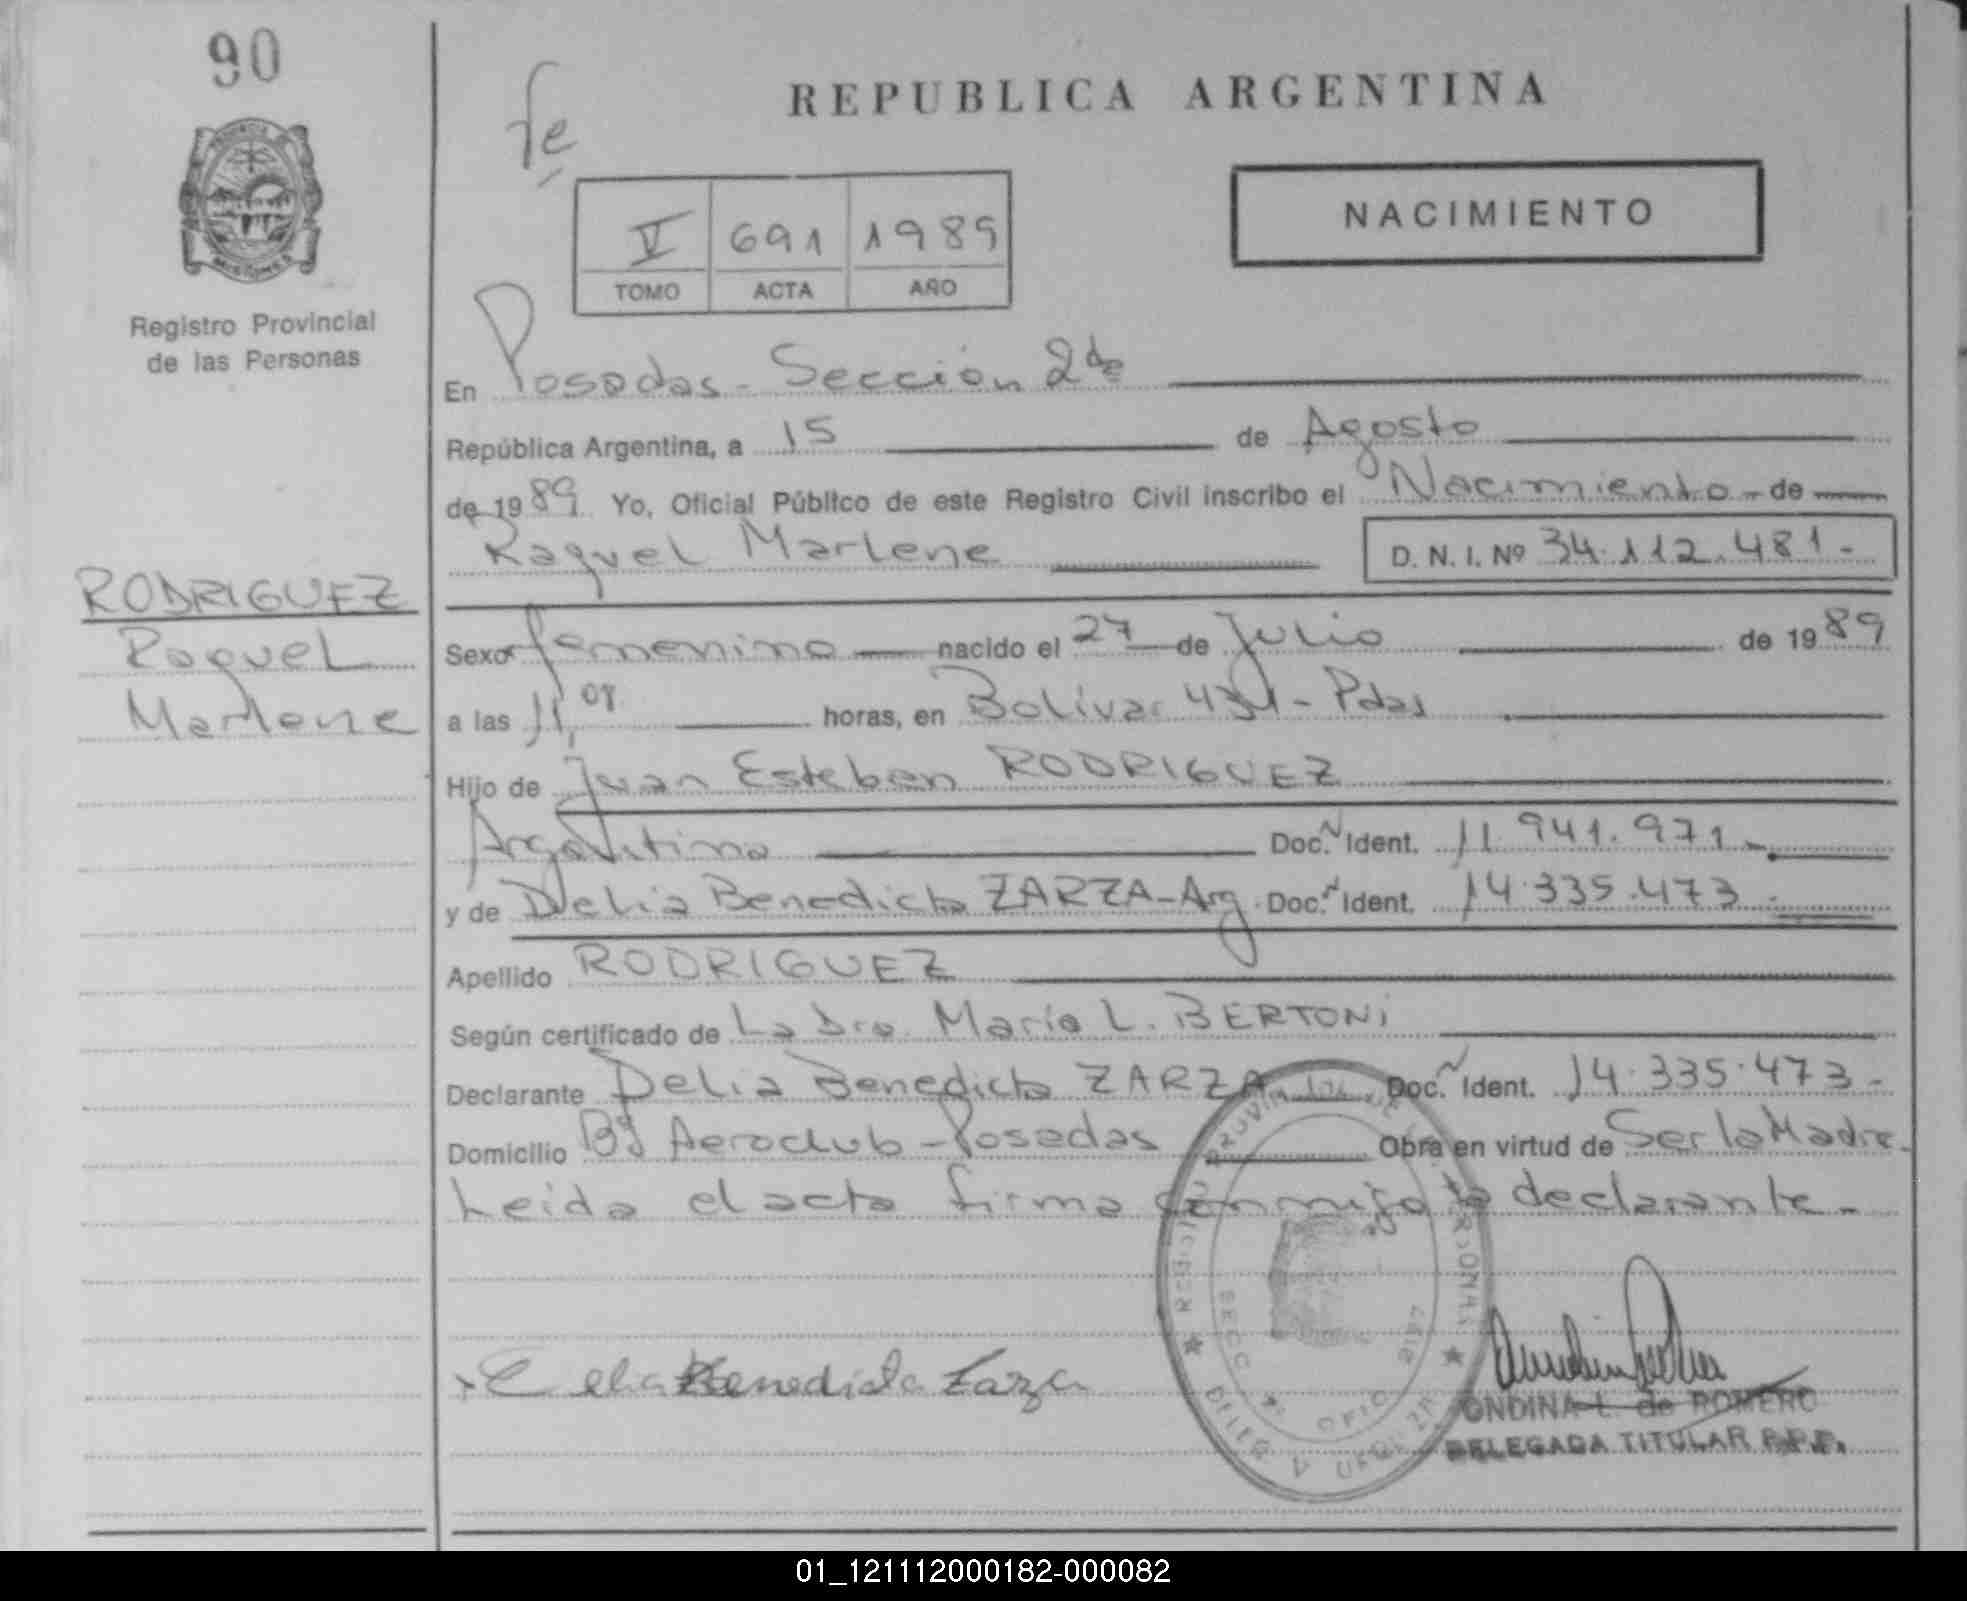 90
REPUBLICA ARGENTINA
fe
V 691 1989
TOMO ACTA AÑO
NACIMIENTO
MISIONES
Registro Provincial
de las Personas
En Posadas - Sección 2da
República Argentina, a 15 de Agosto
de 1989 Yo, Oficial Público de este Registro Civil inscribo el Nacimiento - de
Raquel Marlene D. N. I. Nº 34.112.481.-
RODRIGUEZ
Raquel
Marlene
Sexo femenino nacido el 27 de Julio de 1989
a las 11, horas, en Bolívar - Pdas
Hijo de Juan Esteban RODRIGUEZ
Argentino Doc. N Ident. 11.941.971.-
y de Delia Benedicta ZARZA - Arg. Doc. N Ident. 14.335.473.-
Apellido RODRIGUEZ
Según certificado de La Dra. María L. BERTONI
Declarante Delia Benedicta ZARZA Doc. N Ident. 14.335.473.-
Domicilio Bº Aeroclub - Posadas Obra en virtud de Ser la Madre.
Leida el acta firma conmigo la declarante.-
Delia Benedicta Zarza
ONDINA L. de ROMERO
DELEGADA TITULAR R.P.P.
01_121112000182-000082